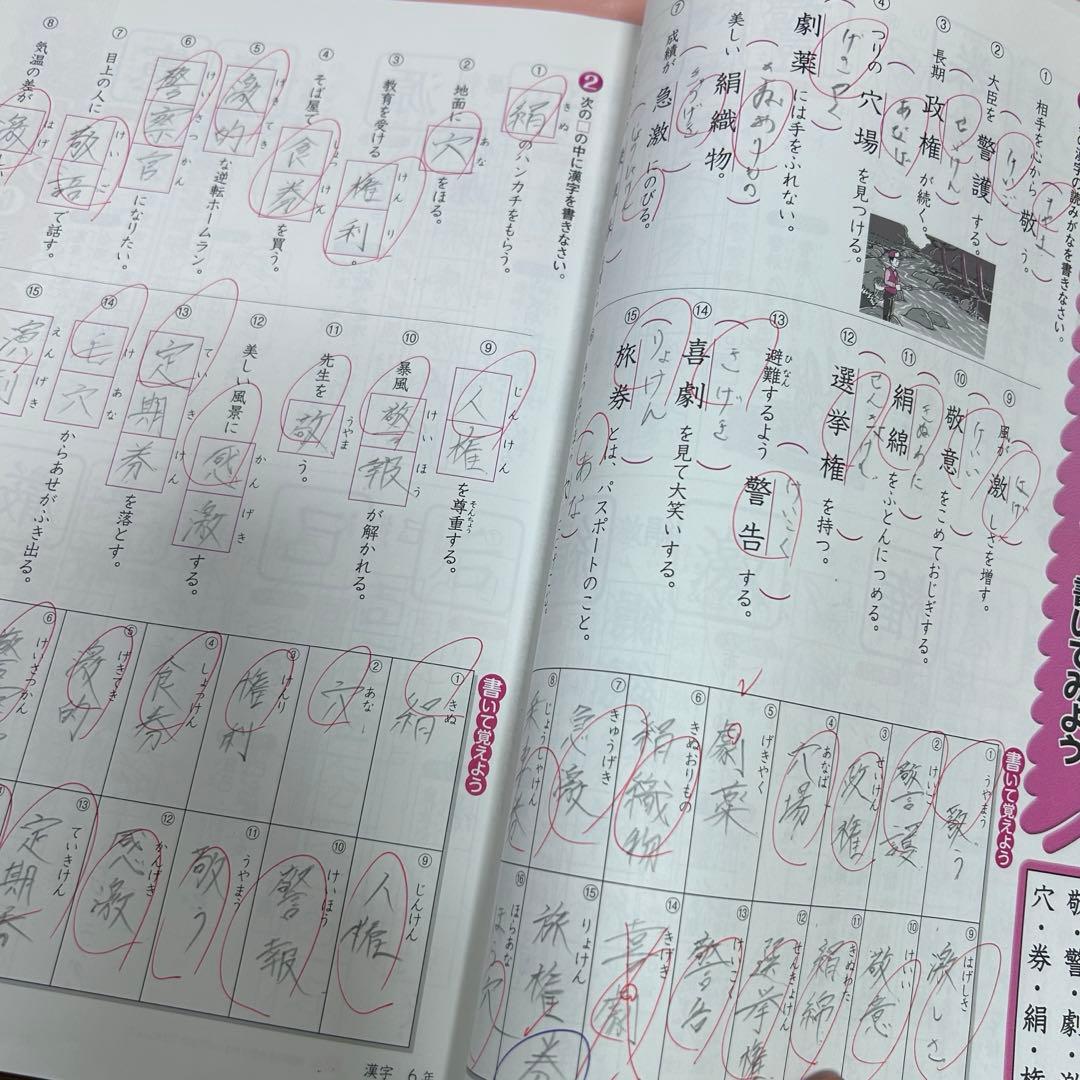 書いてみよう
敬・警・劇・激
穴・券・絹・権
漢字の読みがなを書きなさい。
① 相手を心から敬う。
② 大臣を警護する。
けいご
③ 長期政権が続く。
せいけん
④ つりの穴場を見つける。
あなば
劇薬には手をふれない。
げきやく
美しい絹織物。
きぬおりもの
⑦ 成績が急激にのびる。
きゅうげき
⑨ 風が激しさを増す。
はげ
⑩ 敬意をこめておじぎする。
けいい
⑪ 絹綿をふとんにつめる。
⑫ 選挙権を持つ。
⑬ 避難するよう警告する。
ひなん
けいこく
⑭ 喜劇を見て大笑いする。
きげき
⑮ 旅券とは、パスポートのこと。
りょけん
書いて覚えよう
① うやまう 敬う
② けいご 警護
③ せいけん 政権
④ あなば 穴場
⑤ げきやく 劇薬
⑥ きぬおりもの 絹織物
⑦ きゅうげき 急激
⑧ じょうしゃけん
⑨ はげしさ 激しさ
⑩ けいい 敬意
⑪ きぬわた 絹綿
⑫ せんきょけん 選挙権
⑬ けいこく 警告
⑭ きげき 喜劇
⑮ りょけん 旅権
券
⑯ ほらあな
❷ 次の□の中に漢字を書きなさい。
① 絹のハンカチをもらう。
きぬ
② 地面に穴をほる。
あな
③ 教育を受ける権利。
けんり
④ そば屋で食券を買う。
しょっけん
⑤ 激的な逆転ホームラン。
げきてき
⑥ 警察官になりたい。
けいさつかん
⑦ 目上の人に敬語で話す。
けいご
⑧ 気温の差が激
はげ
⑨ 人権を尊重する。
じんけん
そんちょう
⑩ 暴風警報が解かれる。
けいほう
⑪ 先生を敬う。
うやま
⑫ 美しい風景に感激する。
かんげき
⑬ 定期券を落とす。
ていきけん
⑭ 毛穴からあせがふき出る。
けあな
⑮ えんげき
書いて覚えよう
① きぬ 絹
② あな 穴
③ けんり 権利
④ しょっけん 食券
⑤ げきてき 激的
⑥ けいさつかん
⑨ じんけん 人権
⑩ けいほう 警報
⑪ うやまう 敬う
⑫ かんげき 感激
⑬ ていきけん 定期券
漢字 6年